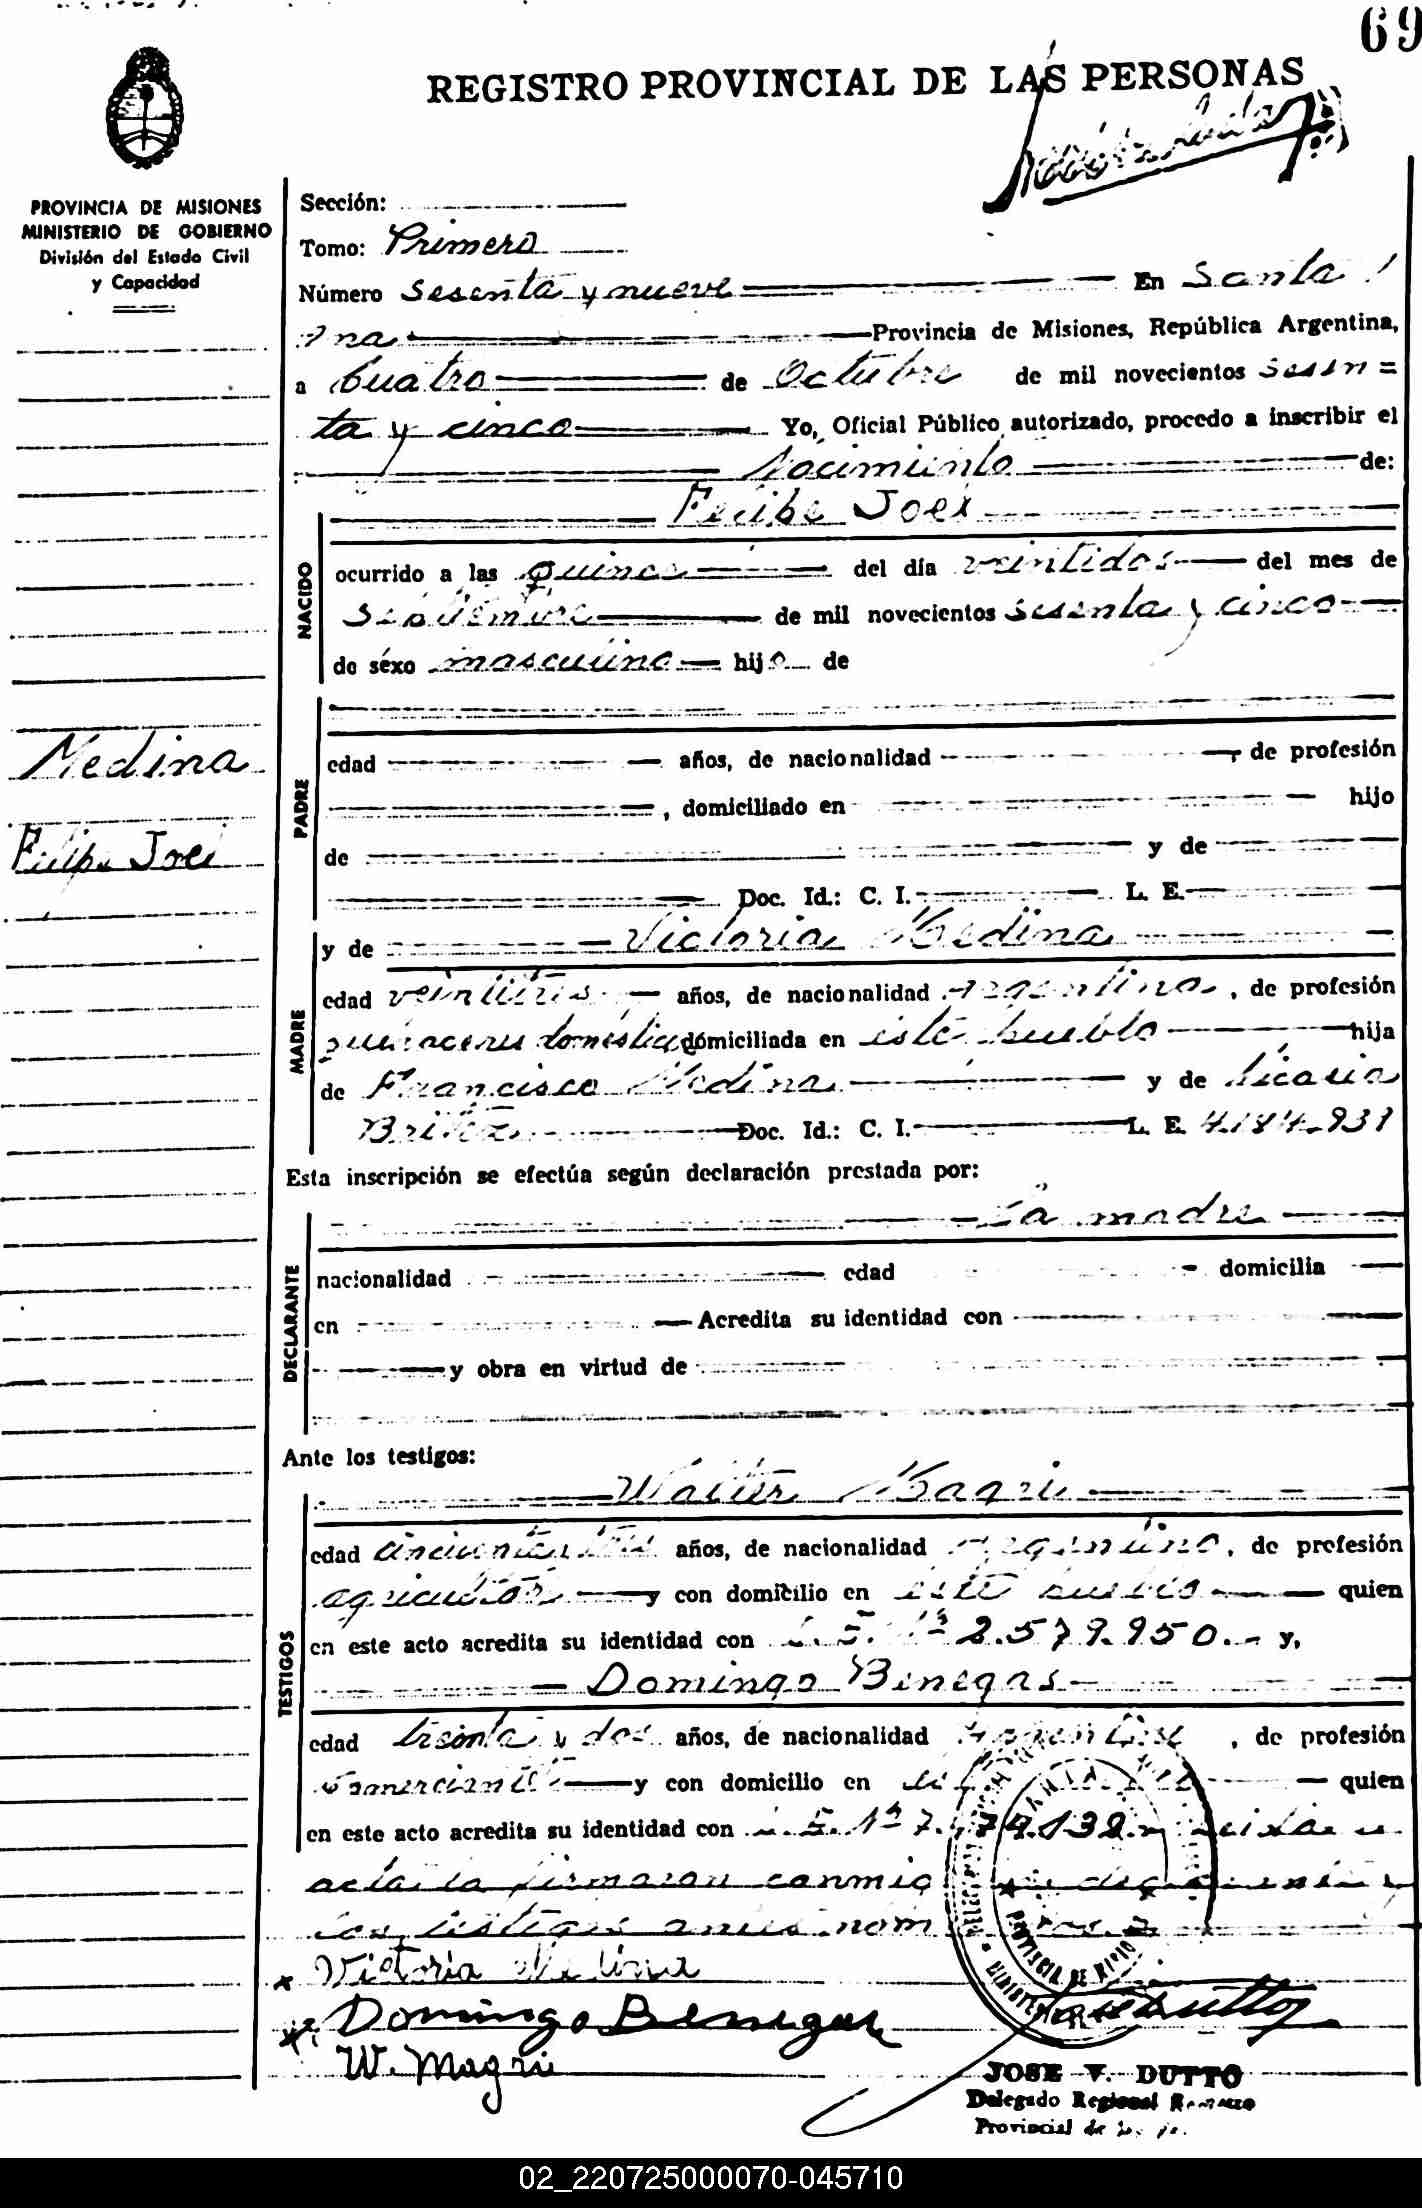 69
REGISTRO PROVINCIAL DE LAS PERSONAS
PROVINCIA DE MISIONES
MINISTERIO DE GOBIERNO
División del Estado Civil
y Capacidad
Sección:
Tomo: Primero
Número sesenta y nueve En Santa
Ana Provincia de Misiones, República Argentina,
a Cuatro de Octubre de mil novecientos sesen =
ta y cinco Yo, Oficial Público autorizado, procedo a inscribir el
Nacimiento de:
Felipe Joel
NACIDO
ocurrido a las quince del día veintidos del mes de
Septiembre de mil novecientos sesenta y cinco
de sexo masculino hijo de
Medina
Felipe Joel
PADRE
edad años, de nacionalidad , de profesión
, domiciliado en hijo
de y de
Doc. Id.: C. I. L. E.
MADRE
y de Victoria Medina
edad veintitres años, de nacionalidad Argentina, de profesión
quehaceres domésticos domiciliada en este pueblo hija
de Francisco Medina y de
Doc. Id.: C. I. L. E. 4.184.931
Esta inscripción se efectúa según declaración prestada por:
La madre
DECLARANTE
nacionalidad edad domicilia
en Acredita su identidad con
y obra en virtud de
Ante los testigos:
TESTIGOS
Walter Magri
edad cincuenta y años, de nacionalidad Argentino, de profesión
agricultor y con domicilio en este pueblo quien
en este acto acredita su identidad con L. E. Nº 2.579.950.- y,
Domingo Benegas
edad treinta y dos años, de nacionalidad Argentino, de profesión
comerciante y con domicilio en quien
en este acto acredita su identidad con L. E. Nº 7. Leida el
acta la firmaron conmigo y
los testigos
x Victoria Medina
Domingo Benegas
W. Magri
JOSE V. DUTTO
Delegado Regional
Provincial de
02_220725000070-045710